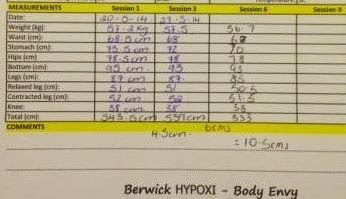 MEASUREMENTS Session 1 Session 3 Session 6 Session 9
Date: 20-5-14 27-5-14
Weight (kg): 57.2kg 57.5 56.7
Waist (cm): 68.5cm 68 68
Stomach (cm): 75.5cm 72 70
Hips (cm) 78.5cm 78 78
Bottom (cm): 95 cm 95 93
Legs (cm): 87 cm 87 85
Relaxed leg (cm): 51 cm 51 50.5
Contracted leg (cm): 52 cm 52 51.5
Knee: 38 cm 38
Total (cm): 543.5cm 539cm 533
COMMENTS 4.5cm 6cms
= 10.5cms
Berwick HYPOXI - Body Envy